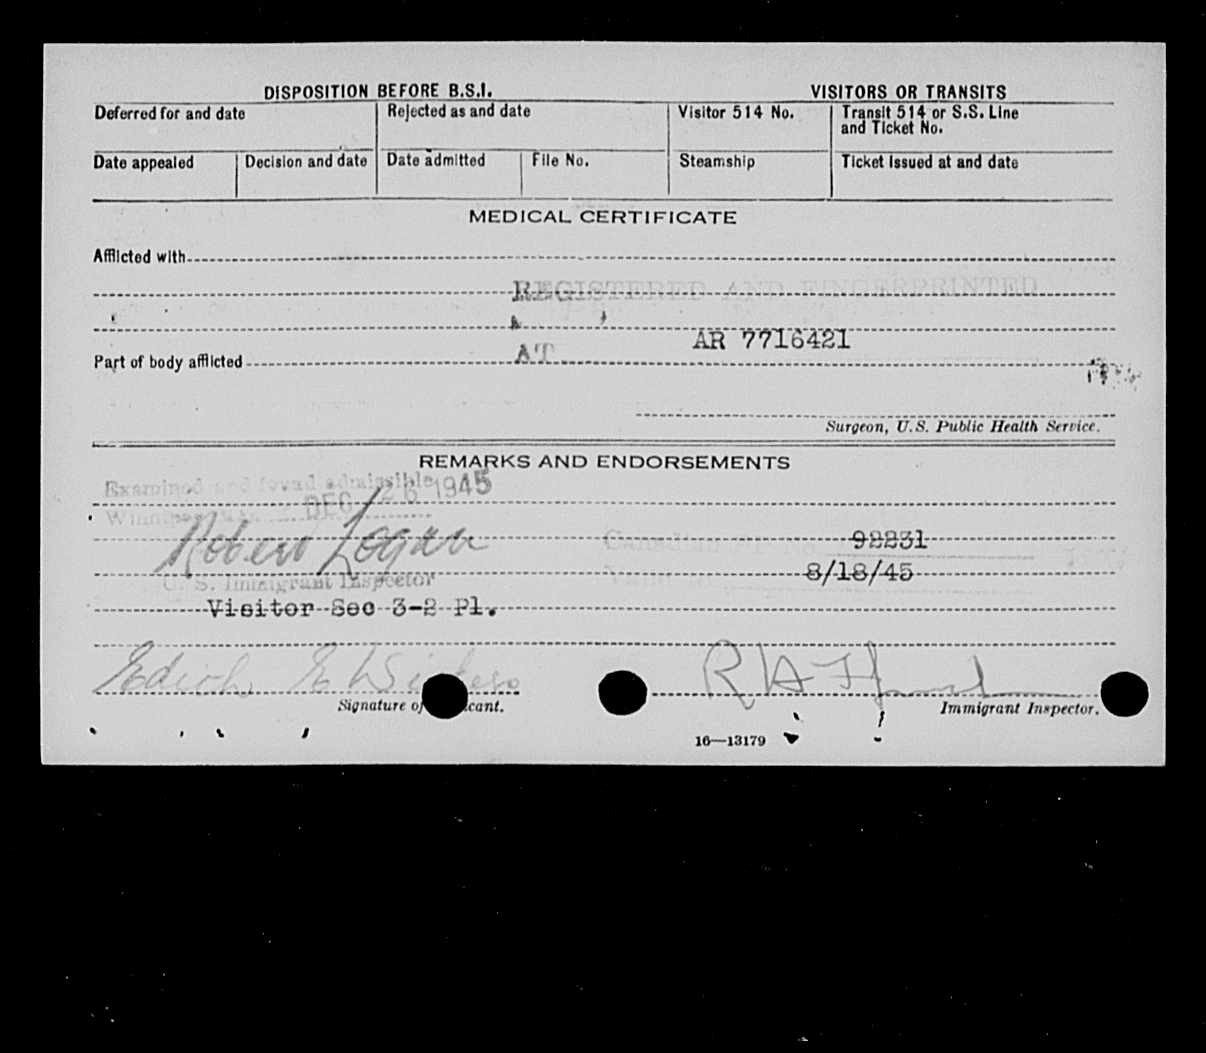 DISPOSITION BEFORE B.S.I. VISITORS OR TRANSITS
Deferred for and date Rejected as and date Visitor 514 No. Transit 514 or S.S. Line and Ticket No.
Date appealed Decision and date Date admitted File No. Steamship Ticket issued at and date
MEDICAL CERTIFICATE
Afflicted with
REGISTERED AND FINGERPRINTED
AR 7716421
AT
Part of body afflicted
Surgeon, U.S. Public Health Service.
REMARKS AND ENDORSEMENTS
Examined and found admissible
DEC 26 1945
Robert Logan
Canadian 92231
U. S. Immigrant Inspector
8/18/45
Visitor Sec 3-2 Pl.
Edith E
Signature of
Immigrant Inspector.
16—13179